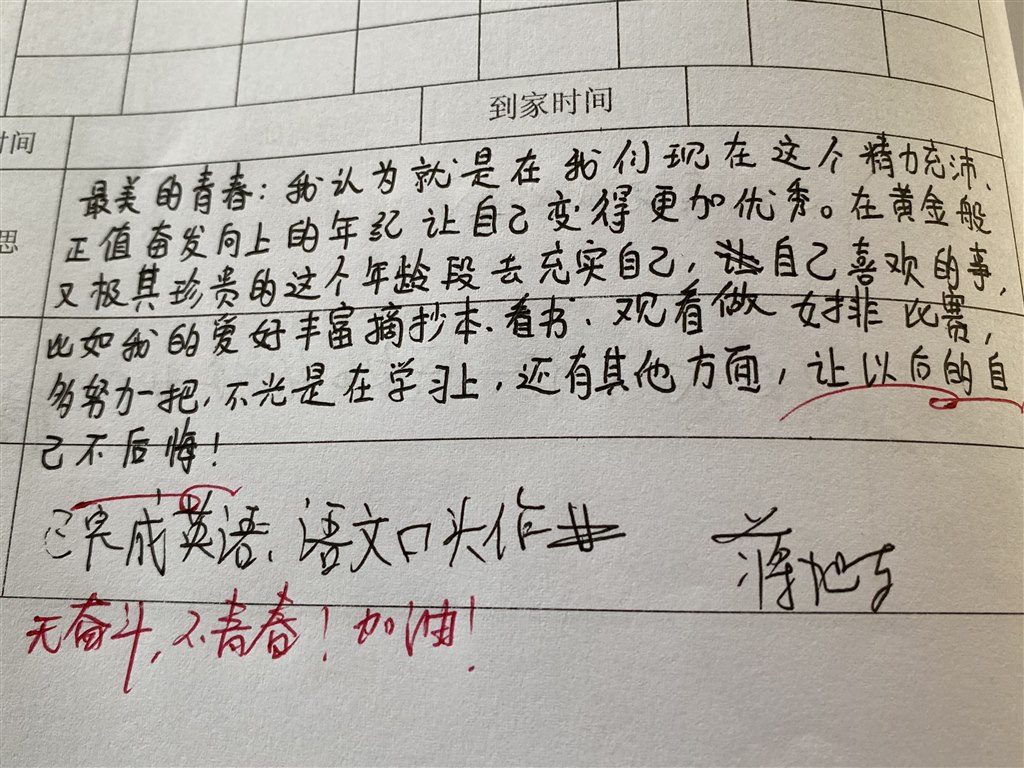 到家时间
时间
最美的青春：我认为就是在我们现在这个精力充沛、
思
正值奋发向上的年纪让自己变得更加优秀。在黄金般
又极其珍贵的这个年龄段去充实自己，做自己喜欢的事，
比如我的爱好丰富摘抄本、看书、观看女排比赛，
多努力一把，不光是在学习上，还有其他方面，让以后的自
己不后悔！
已完成英语、语文口头作业
蒋
无奋斗，不青春！加油！